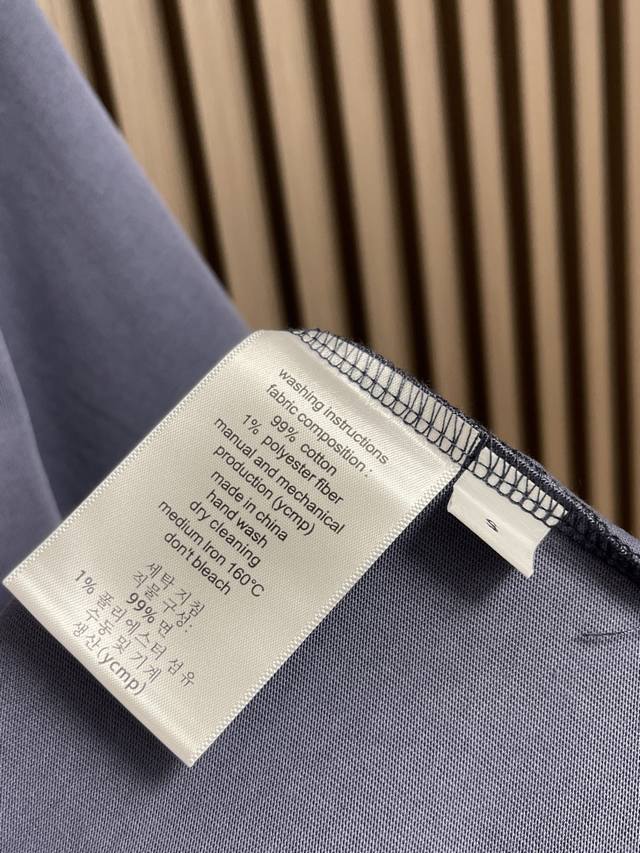 washing instructions
fabric composition :
99% cotton
1% polyester fiber
manual and mechanical
production (ycmp)
made in china
hand wash
dry cleaning
medium Iron 160°C
don't bleach
세탁 지침
직물 구성:
99% 면
1% 폴리에스터 섬유
수동 및 기계
생산(ycmp)